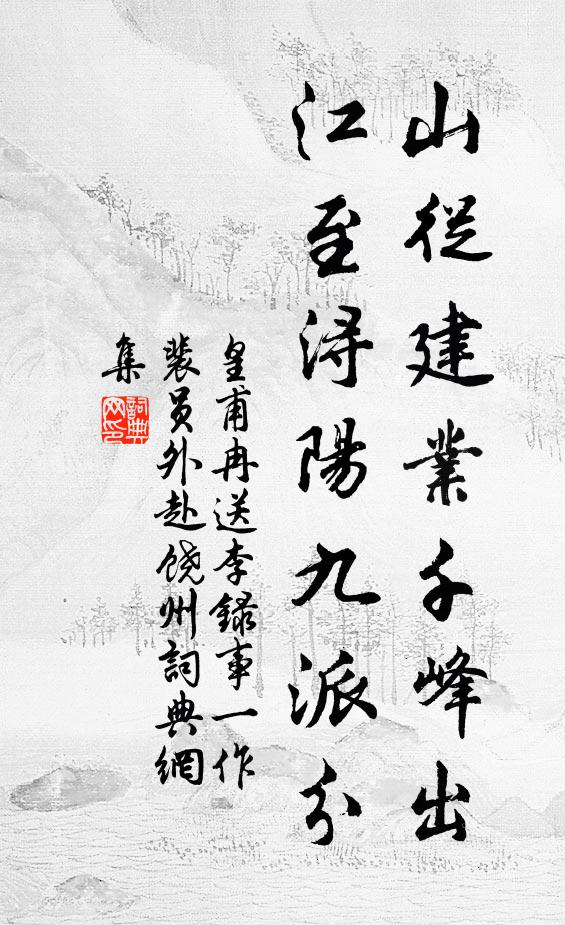 山從建業千峰出
江至潯陽九派分
皇甫冉送李錄事一作
裴員外赴饒州詞典網
集
詞典網印